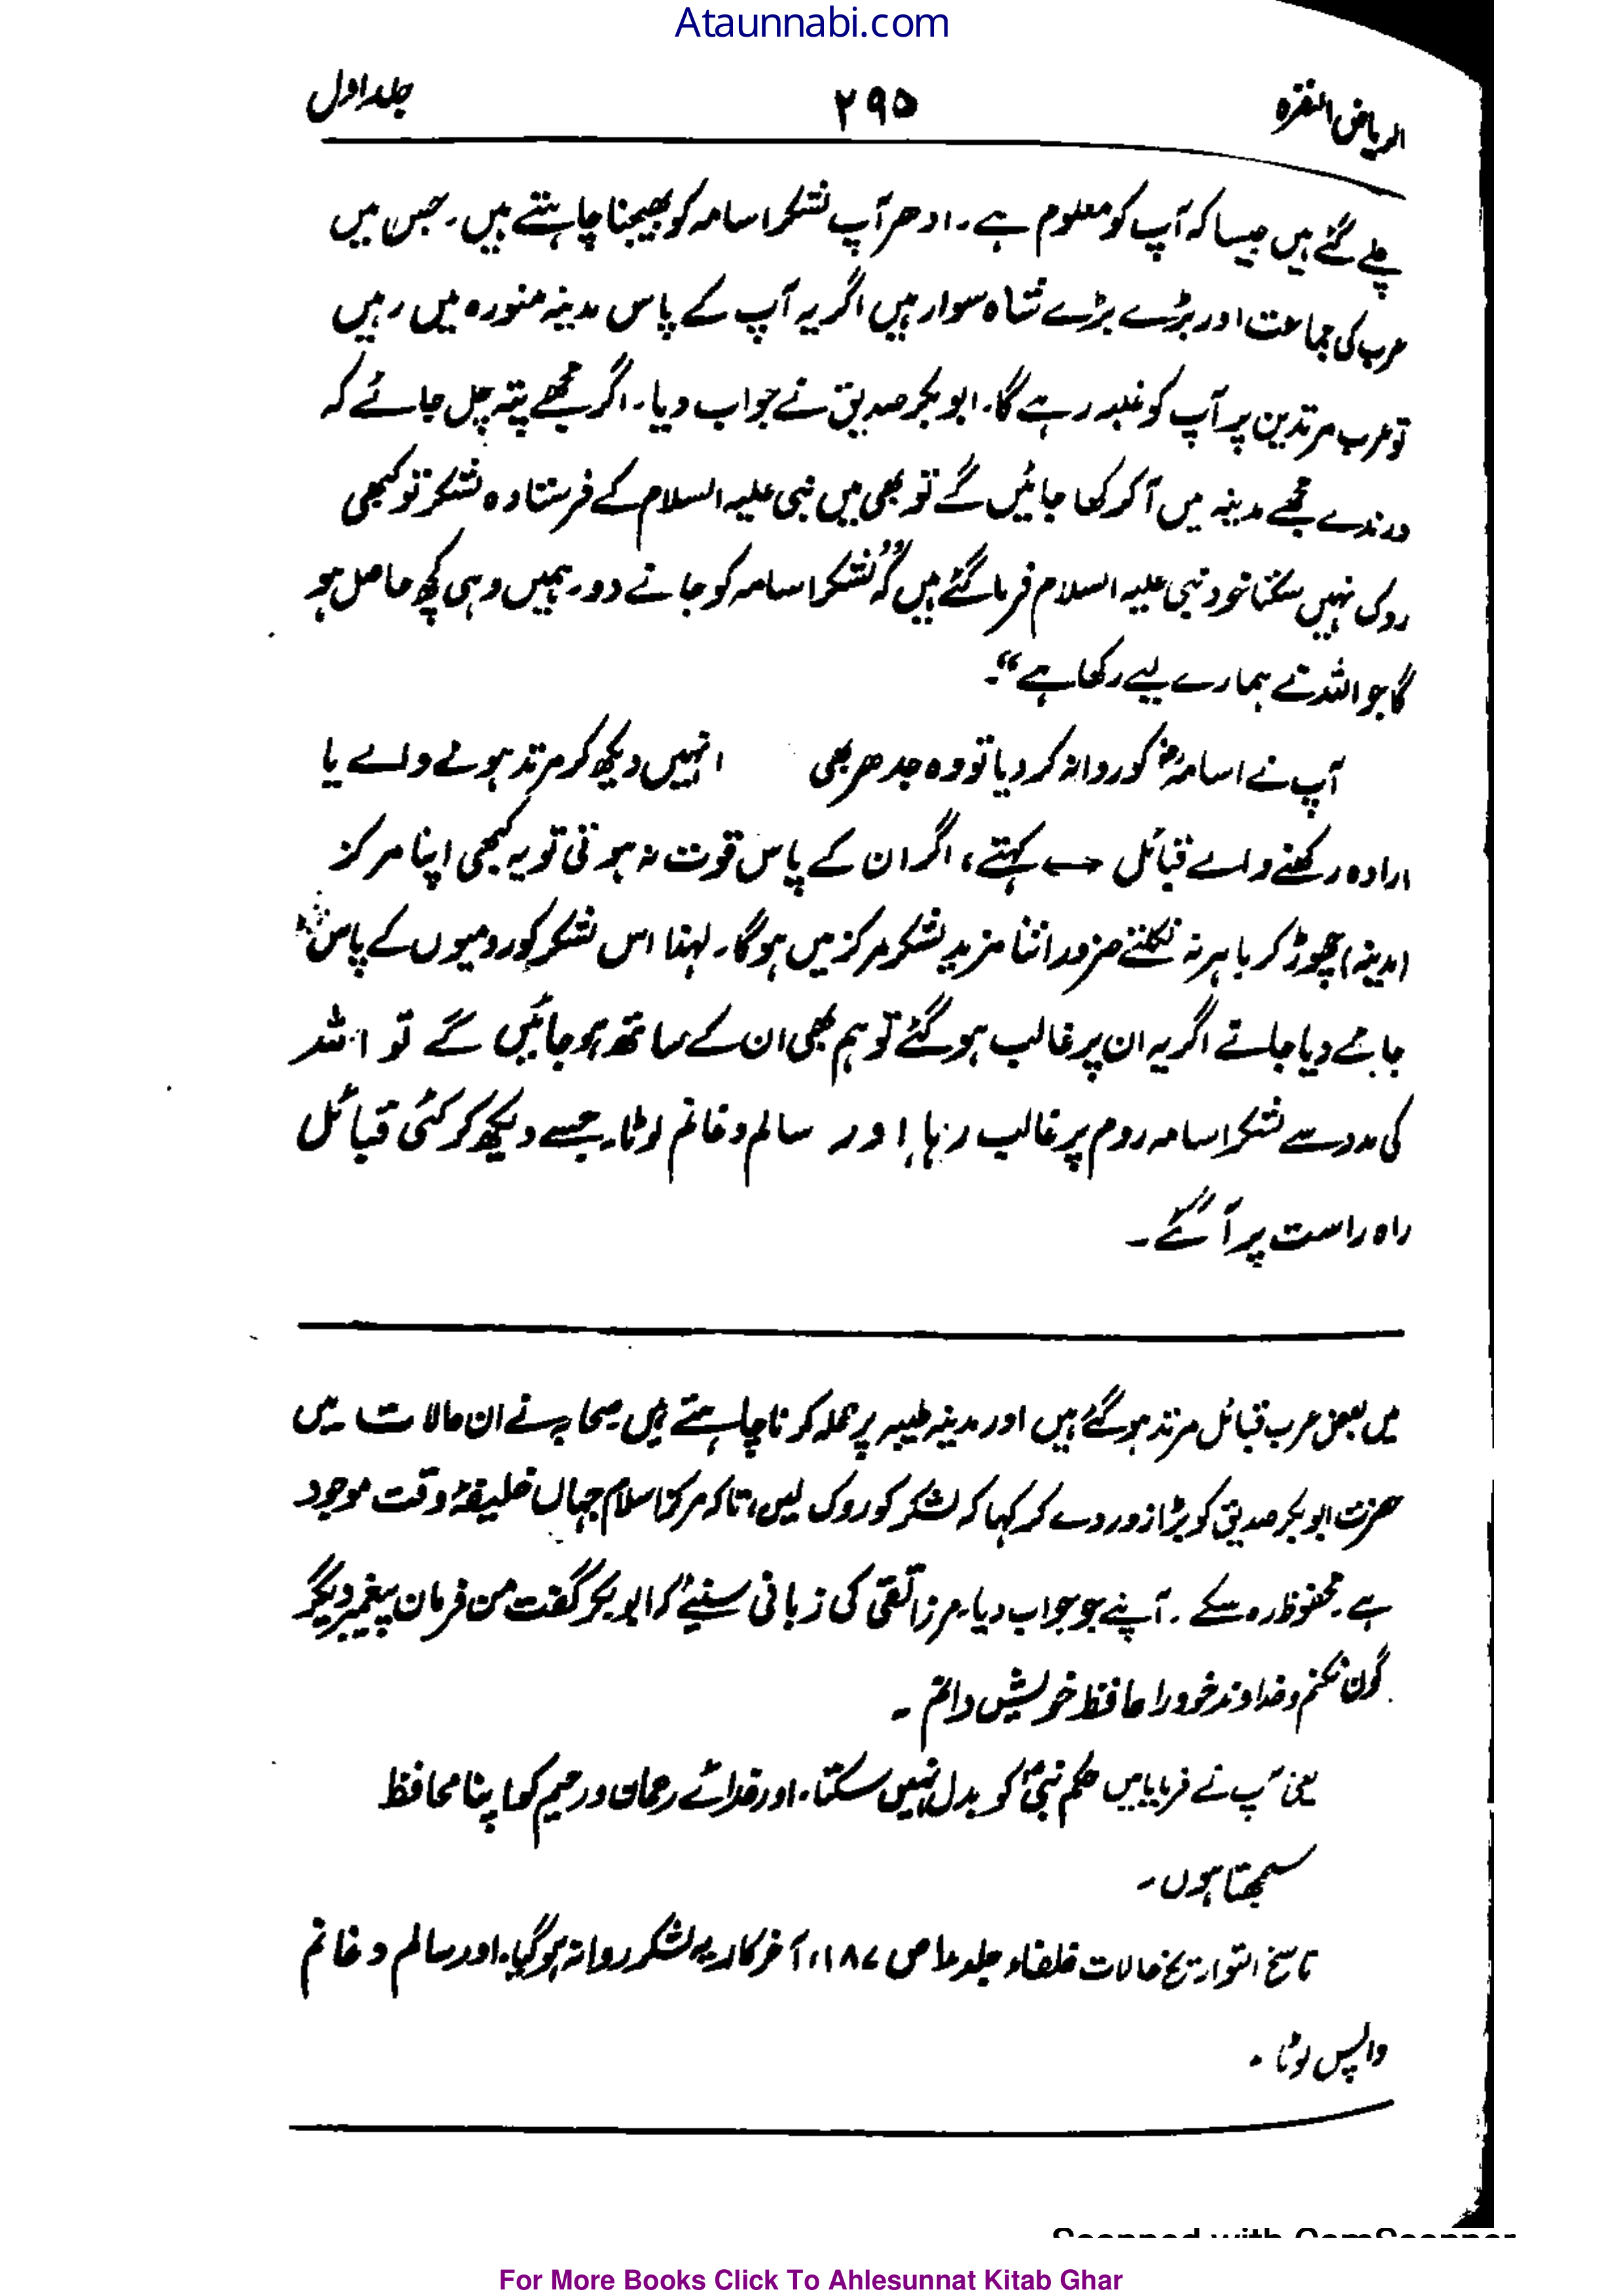 Ataunnabi.com
الریاض النضرہ ۲۹۵ جلد اول
چلے گئے ہیں جیسا کہ آپ کو معلوم ہے۔ ادھر آپ لشکر اسامہ کو بھیجنا چاہتے ہیں۔ جس میں
عرب کی جماعت اور بڑے بڑے شاہ سوار ہیں اگر یہ آپ کے پاس مدینہ منورہ میں رہیں
تو عرب مرتدین پر آپ کو غلبہ رہے گا۔ ابو بکر صدیق نے جواب دیا۔ اگر مجھے پتہ چل جائے کہ
درندے مجھے مدینہ میں آ کر کھا جائیں گے تو بھی میں نبی علیہ السلام کے فرستادہ لشکر تو کبھی
روک نہیں سکتا خود نبی علیہ السلام فرما گئے ہیں کہ ”لشکر اسامہ کو جانے دو۔ ہمیں وہی کچھ حاصل ہو
گا جو اللہ نے ہمارے لیے رکھا ہے“۔
آپ نے اسامہؓ کو روانہ کر دیا تو وہ جدھر بھی انہیں دیکھ کر مرتد ہونے والے یا
ارادہ رکھنے والے قبائل کہتے، اگر ان کے پاس قوت نہ ہوتی تو یہ کبھی اپنا مرکز
(مدینہ) چھوڑ کر باہر نہ نکلتے ضرور اتنا مزید لشکر مرکز میں ہوگا۔ لہذا اس لشکر کو رومیوں کے پاس
جانے دیا جائے اگر یہ ان پر غالب ہو گئے تو ہم بھی ان کے ساتھ ہو جائیں گے تو اللہ
کی مدد سے لشکر اسامہ روم پر غالب رہا اور سالم و غانم لوٹا۔ جسے دیکھ کر کئی قبائل
راہ راست پر آ گئے۔
میں بعض عرب قبائل مرتد ہو گئے ہیں اور مدینہ طیبہ پر حملہ کرنا چاہتے ہیں صحابہ نے ان حالات میں
حضرت ابو بکر صدیق کو بڑا زور دے کر کہا کہ لشکر کو روک لیں، تاکہ مرکز اسلام جہاں خلیفۂ وقت موجود
ہے۔ محفوظ رہ سکے۔ آپنے جو جواب دیا۔ مرزا تقی کی زبانی سنیئے کہ ابو بکر گفت من فرمان پیغمبر دیگر
گون نکنم و خداوند خود را حافظ خویش دانم۔
یعنی آپ نے فرمایا میں حکم نبیؐ کو بدل نہیں سکتا۔ اور خدائے رحمان و رحیم کو اپنا محافظ
سمجھتا ہوں۔
ناسخ التواریخ حالات خلفاء جلد ۱ ص ۱۸۷، آخر کار یہ لشکر روانہ ہو گیا۔ اور سالم و غانم
واپس لوٹا۔
Scanned with CamScanner
For More Books Click To Ahlesunnat Kitab Ghar